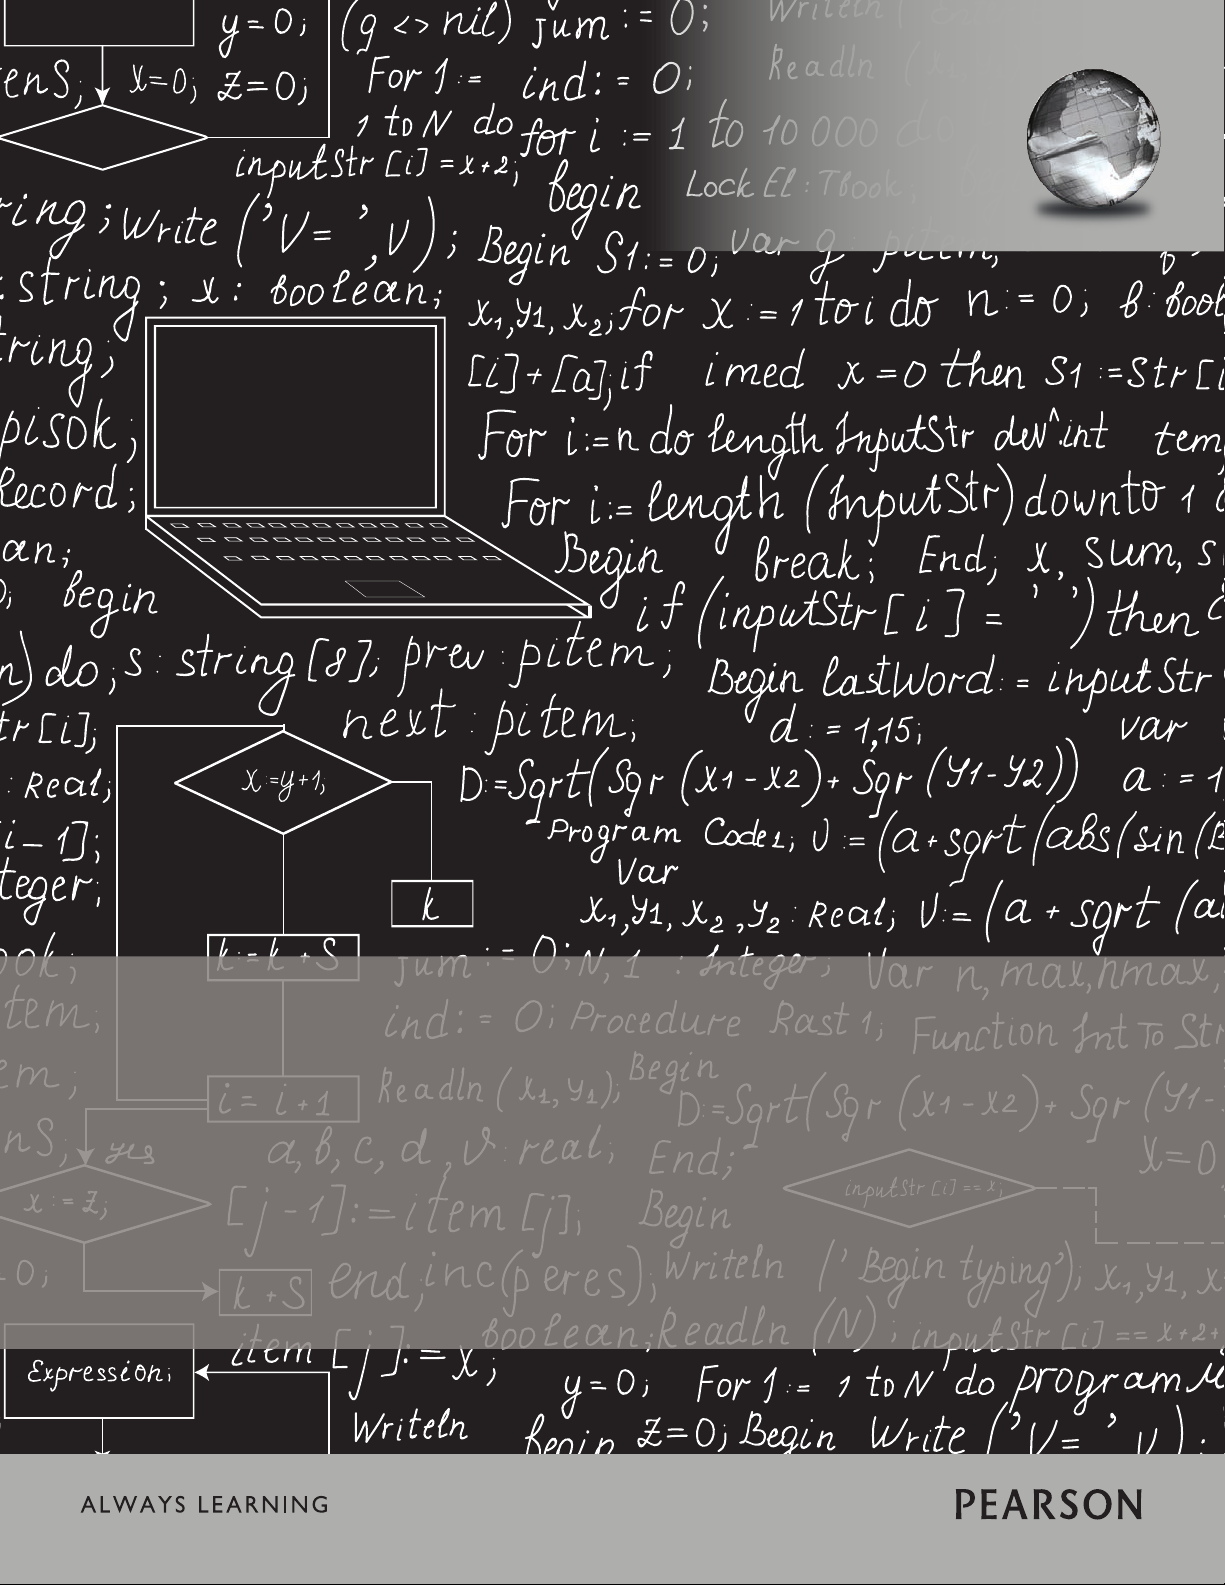 y=0; (g <> nil) jum := 0; Writeln (
enS; x=0; z=0; For J := ind: = 0; Readln (
1 to N do for i := 1 to 10 000 do
inputStr [i] = x+2; begin Lock El : Tbook;
ring; Write ('V= ', v); Begin S1:= 0; var g : pitem;
: string; x : boolean; x1,y1, x2; for x := 1 to i do n := 0; b : bool
tring; [i]+[a]; if imed x =0 then S1 :=Str [i
pisok; For i:=n do length InputStr dev^.int tem
Record; For i:= length (InputStr) downto 1
an; Begin break; End; x, sum, s
0; begin if (inputStr [ i ] = ' ') then
n) do; s : string [8]; prev : pitem; Begin lastWord : = inputStr
tr [i]; next : pitem; d : = 1,15; var
x :=y+1;
: Real; D:=Sqrt(Sqr (x1-x2)+ Sqr (y1-y2)) a : = 1
[i-1]; Program Code1; v := (a+sqrt (abs(sin (B
teger; Var
k
x1,y1, x2 ,y2 : Real; v:= (a + sqrt (a
ook; k:=k +S jum := 0; N, 1 : Integer; Var n, max,nmax,
tem; ind: = 0; Procedure Rast 1; Function Int To Str
em; i= i+1 Readln (x1, y1); Begin D:=Sqrt(Sqr (x1-x2)+ Sqr (y1-
nS; yes a, b, c, d , v : real; End; x=0
x := z; [j-1]:=item [j]; Begin inputStr [i] == x;
0; k +S end; inc(p eres); Writeln (' Begin typing'); x1,y1, x
item [j]:=x; boolean; Readln (N); inputStr [i] == x+2+
Expression; y=0; For J := 1 to N do program
Writeln begin z=0; Begin Write ('V= ' v) ;
ALWAYS LEARNING PEARSON